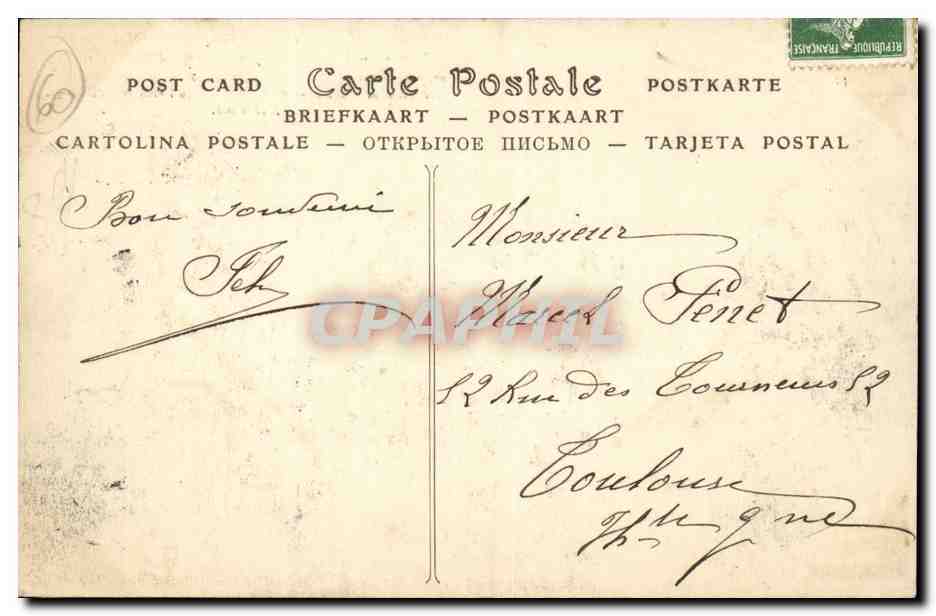 RÉPUBLIQUE FRANÇAISE
60
POST CARD Carte Postale POSTKARTE
BRIEFKAART — POSTKAART
CARTOLINA POSTALE — ОТКРЫТОЕ ПИСЬМО — TARJETA POSTAL
Bon souvenir
Monsieur
Marcel Penet
52 Rue des Tourneurs 52
Toulouse
Hte gne
CPAPHIL